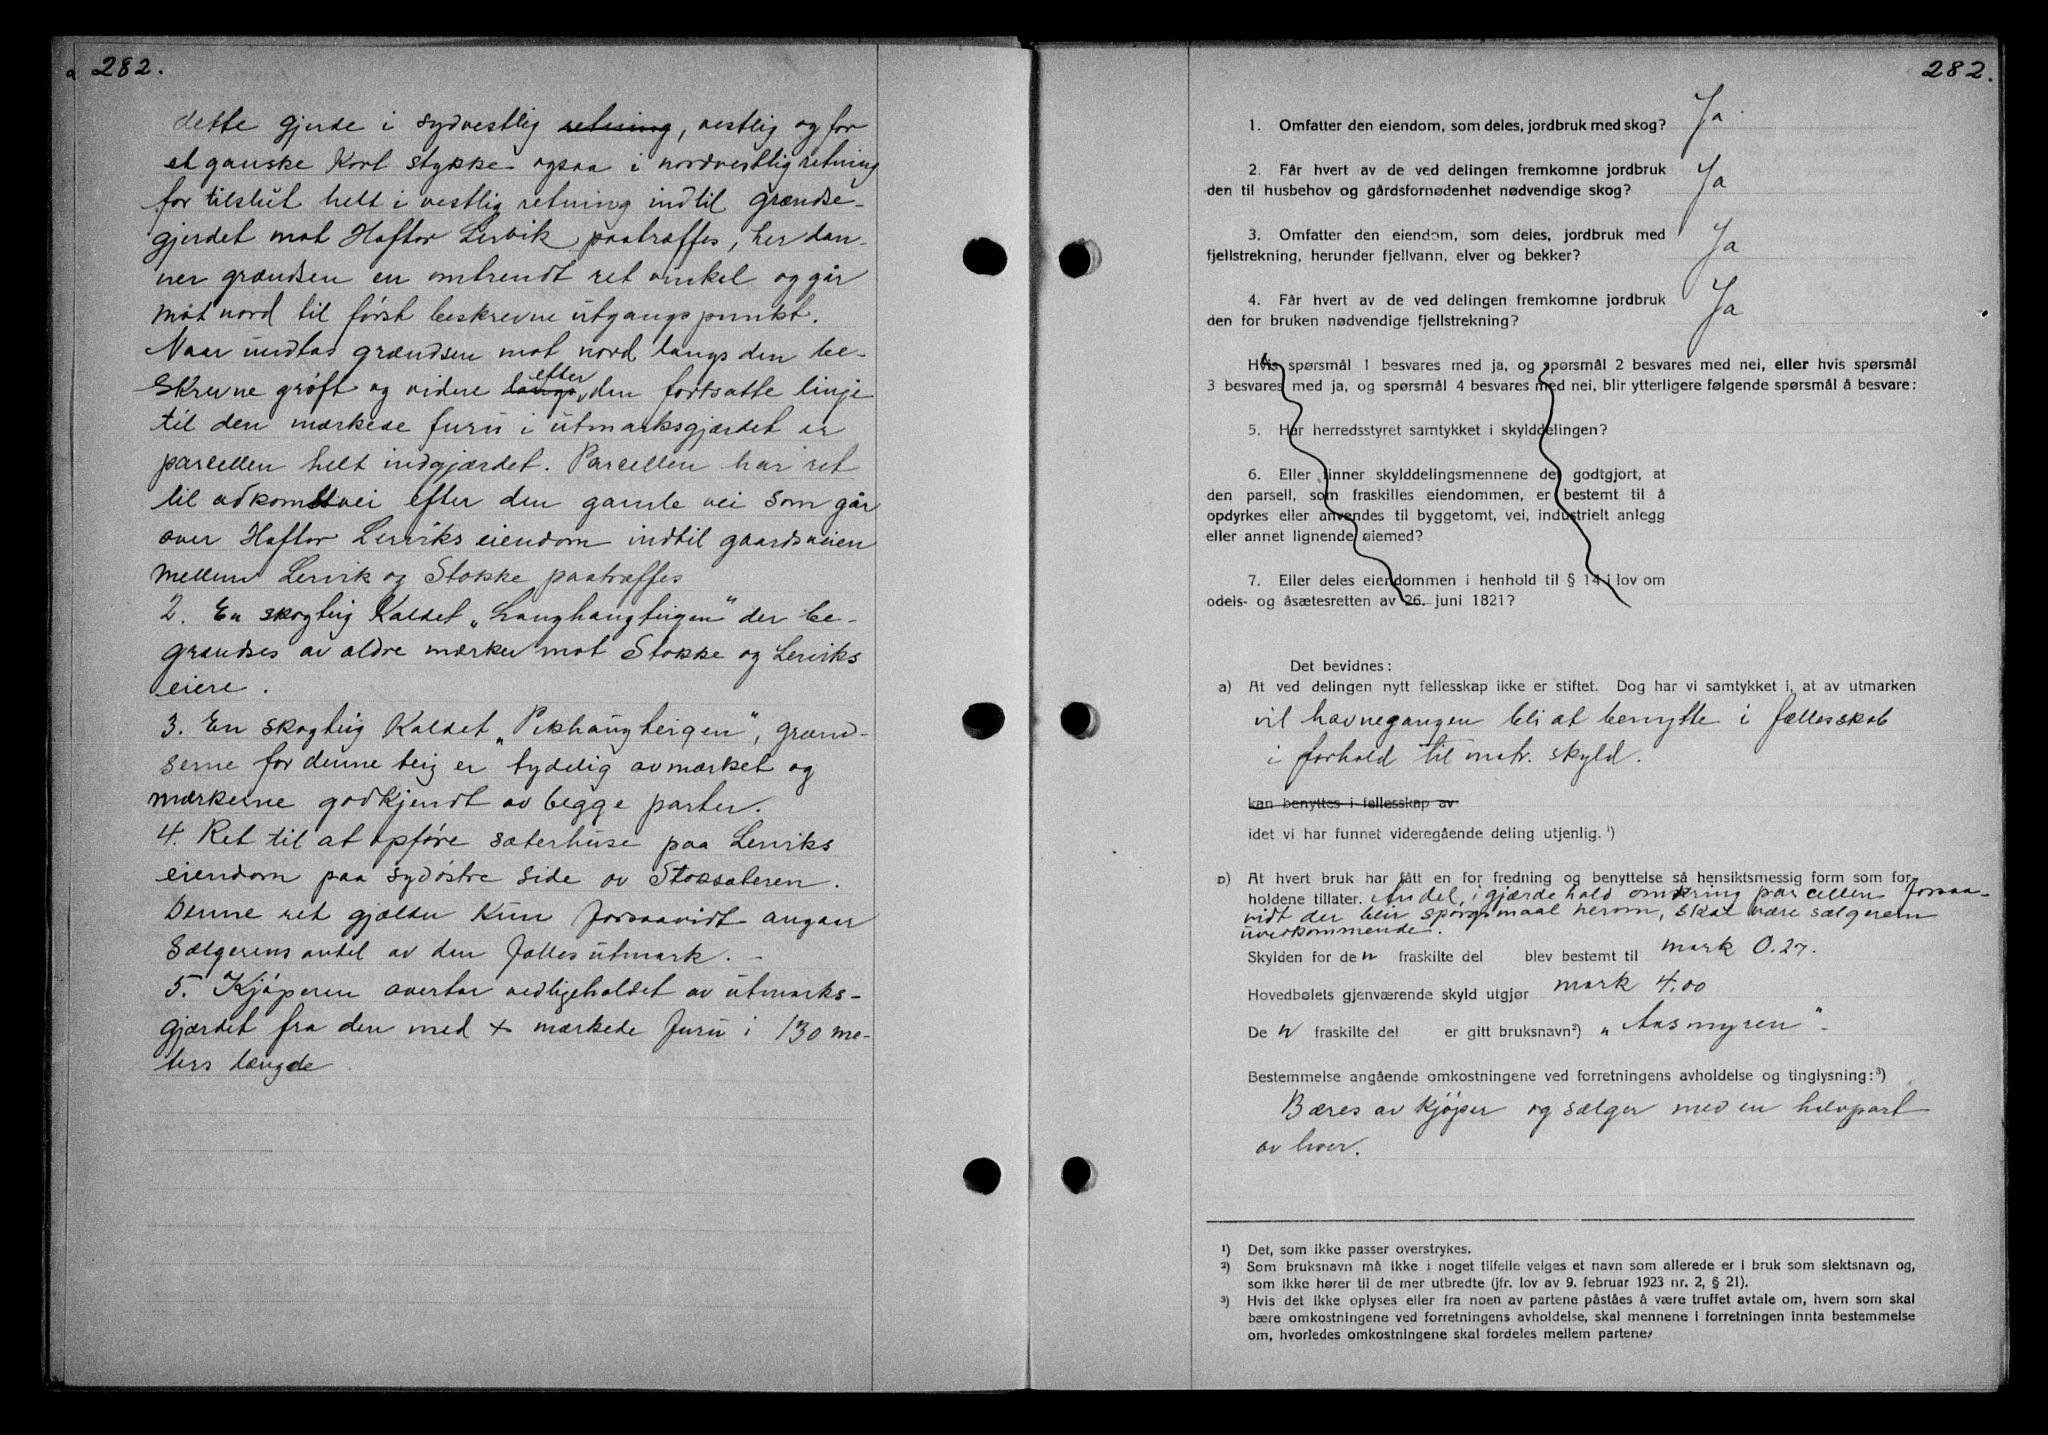 282.
dette gjerde i sydvestlig retning, vestlig og for
et ganske kort stykke ogsaa i nordvestlig retning
for tilslut helt i vestlig retning indtil grændse-
gjerdet mot Haftor Lervik paatræffes, her dan-
ner grændsen en omtrendt ret vinkel og går
mot nord til først beskrevne utgangspunkt.
Naar undtas grændsen mot nord langs den be-
skrevne grøft og videre langs efter den fortsatte linje
til den mærkede furu i utmarksgjærdet er
parcellen helt indgjærdet. Parcellen har ret
til adkomstvei efter den gamle vei som går
over Haftor Lerviks eiendom indtil gaardsveien
mellem Lervik og Stokke paatræffes
2. En skogteig kaldet „Langhaugteigen" der be-
grændses av ældre mærker mot Stokke og Lerviks
eiere.
3. En skogteig kaldet „Pikhaugteigen", grænd-
serne for denne teig er tydelig avmærket og
mærkerne godkjendt av begge parter.
4. Ret til at opføre sæterhuse paa Lerviks
eiendom paa sydøstre side av Stoksæteren.
Denne ret gjælder kun forsaavidt angaar
sælgerens antel av den fælles utmark. -
5. Kjøperen overtar vedligeholdet av utmarks-
gjærdet fra den med + mærkede furu i 130 me-
ters længde.
282.
1. Omfatter den eiendom, som deles, jordbruk med skog? Ja
2. Får hvert av de ved delingen fremkomne jordbruk
den til husbehov og gårdsfornødenhet nødvendige skog? Ja
3. Omfatter den eiendom, som deles, jordbruk med
fjellstrekning, herunder fjellvann, elver og bekker? Ja
4. Får hvert av de ved delingen fremkomne jordbruk
den for bruken nødvendige fjellstrekning? Ja
Hvis spørsmål 1 besvares med ja, og spørsmål 2 besvares med nei, eller hvis spørsmål
3 besvares med ja, og spørsmål 4 besvares med nei, blir ytterligere følgende spørsmål å besvare:
5. Har herredsstyret samtykket i skylddelingen?
6. Eller finner skylddelingsmennene det godtgjort, at
den parsell, som fraskilles eiendommen, er bestemt til å
opdyrkes eller anvendes til byggetomt, vei, industrielt anlegg
eller annet lignende øiemed?
7. Eller deles eiendommen i henhold til § 14 i lov om
odels- og åsætesretten av 26. juni 1821?
Det bevidnes:
a) At ved delingen nytt fellesskap ikke er stiftet. Dog har vi samtykket i, at av utmarken
vil havnegangen bli at benytte i fællesskab
i forhold til matr. skyld.
kan benyttes i fellesskap av
idet vi har funnet videregående deling utjenlig. ¹)
b) At hvert bruk har fått en for fredning og benyttelse så hensiktsmessig form som for-
holdene tillater. Andel i gjærdehold omkring parcellen forsaa-
vidt der blir spørgsmaal herom, skal være sælgeren
uvedkommende.
Skylden for den fraskilte del blev bestemt til mark 0.27.
Hovedbølets gjenværende skyld utgjør mark 4.00
Den fraskilte del er gitt bruksnavn²) „Aasmyren" -
Bestemmelse angående omkostningene ved forretningens avholdelse og tinglysning:³)
Bæres av kjøper og sælger med en halvpart
av hver.
¹) Det, som ikke passer overstrykes.
²) Som bruksnavn må ikke i noget tilfelle velges et navn som allerede er i bruk som slektsnavn og,
som ikke hører til de mer utbredte (jfr. lov av 9. februar 1923 nr. 2, § 21).
³) Hvis det ikke oplyses eller fra noen av partene påståes å være truffet avtale om, hvem som skal
bære omkostningene ved forretningens avholdelse, skal mennene i forretningen innta bestemmelse
om, hvorledes omkostningene skal fordeles mellem partene.